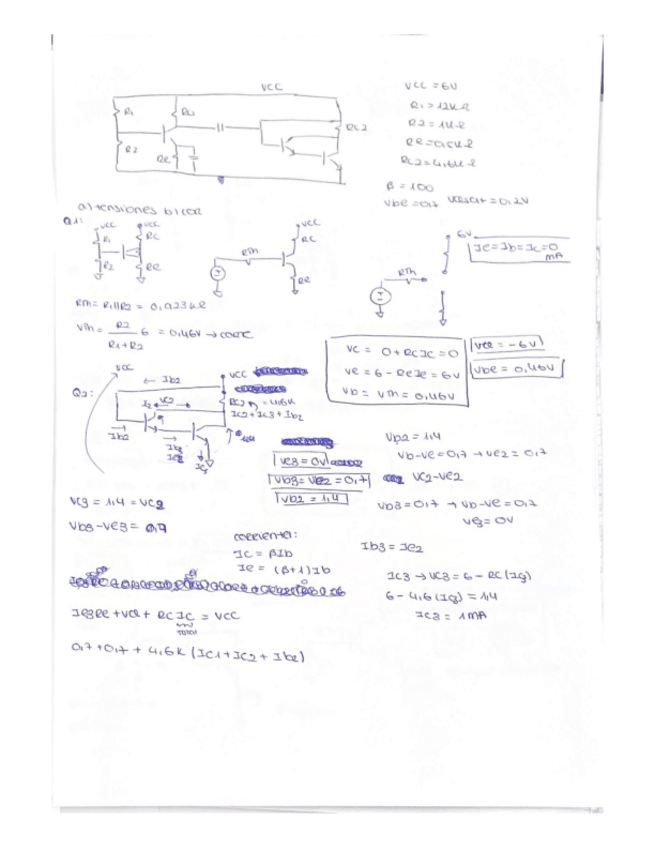 VCC
VCC = 6V
R1 = 12K Ω
R2 = 1K Ω
RE = 0,5K Ω
RC2 = 4,6K Ω
β = 100
Vbe = 0,7 VCEsat = 0,2V
R1
RC1
RC2
R2
RE
a) tensiones b, c, e
Q1:
VCC VCC
R1 RC
R2 RE
Rth
VCC
RC
RE
6V
Rth
Ie = Ib = Ic = 0
mA
Rth = R1||R2 = 0,923K Ω
Vth = R2 / R1+R2 6 = 0,46V → corte
VC = 0 + RC IC = 0
Ve = 6 - ReIe = 6V
Vb = Vth = 0,46V
Vce = -6V
Vbe = 0,46V
VCC
Q2:
Ib2
VCC
RC2 = 4,6K
IC2 + IC3 + Ib2
VC2
Ib2
Ib3
Ie2
Vb2 = 1,4
Vb - Ve = 0,7 → Ve2 = 0,7
Ve3 = 0V
Vb3 = Ve2 = 0,7
VC2 - Ve2
Vb2 = 1,4
VC3 = 1,4 = VC2
Vb3 = 0,7 → Vb - Ve = 0,7
Ve3 = 0V
Vb3 - Ve3 = 0,7
corrientes:
IC = βIb
Ib3 = Ie2
Ie = (β+1)Ib
IC3 → VC3 = 6 - RC (I3)
6 - 4,6 (I3) = 1,4
IC3 = 1mA
Ie3Re + Vce + RC IC = VCC
total
0,7 + 0,7 + 4,6K (IC1 + IC2 + Ib2)